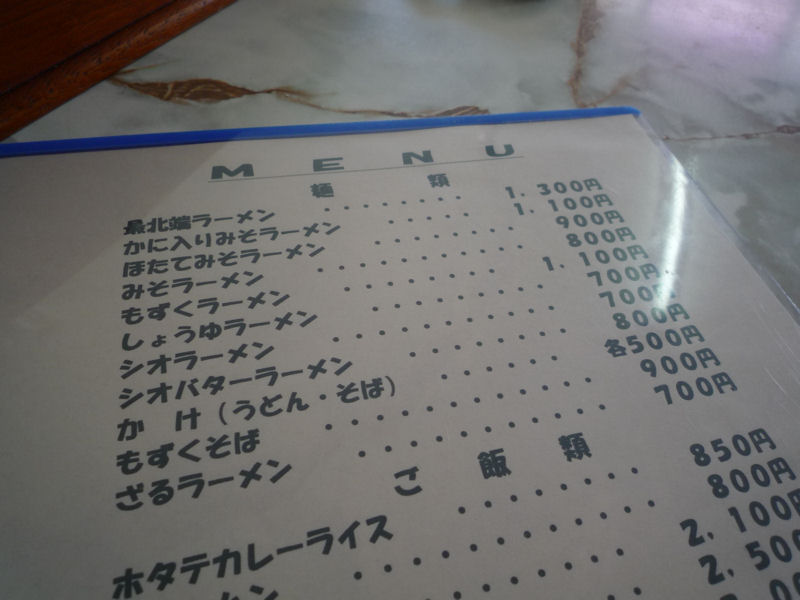 MENU
麺 類
最北端ラーメン ........ 1.300円
かに入りみそラーメン ..... 1.100円
ほたてみそラーメン ....... 900円
みそラーメン ........... 800円
もずくラーメン ......... 1.100円
しょうゆラーメン ......... 700円
シオラーメン ........... 700円
シオバターラーメン ....... 800円
か け（うどん・そば） ..... 各500円
もずくそば ............ 900円
ざるラーメン ........... 700円
ご 飯 類
ホタテカレーライス ....... 850円
800円
2.100円
2.500